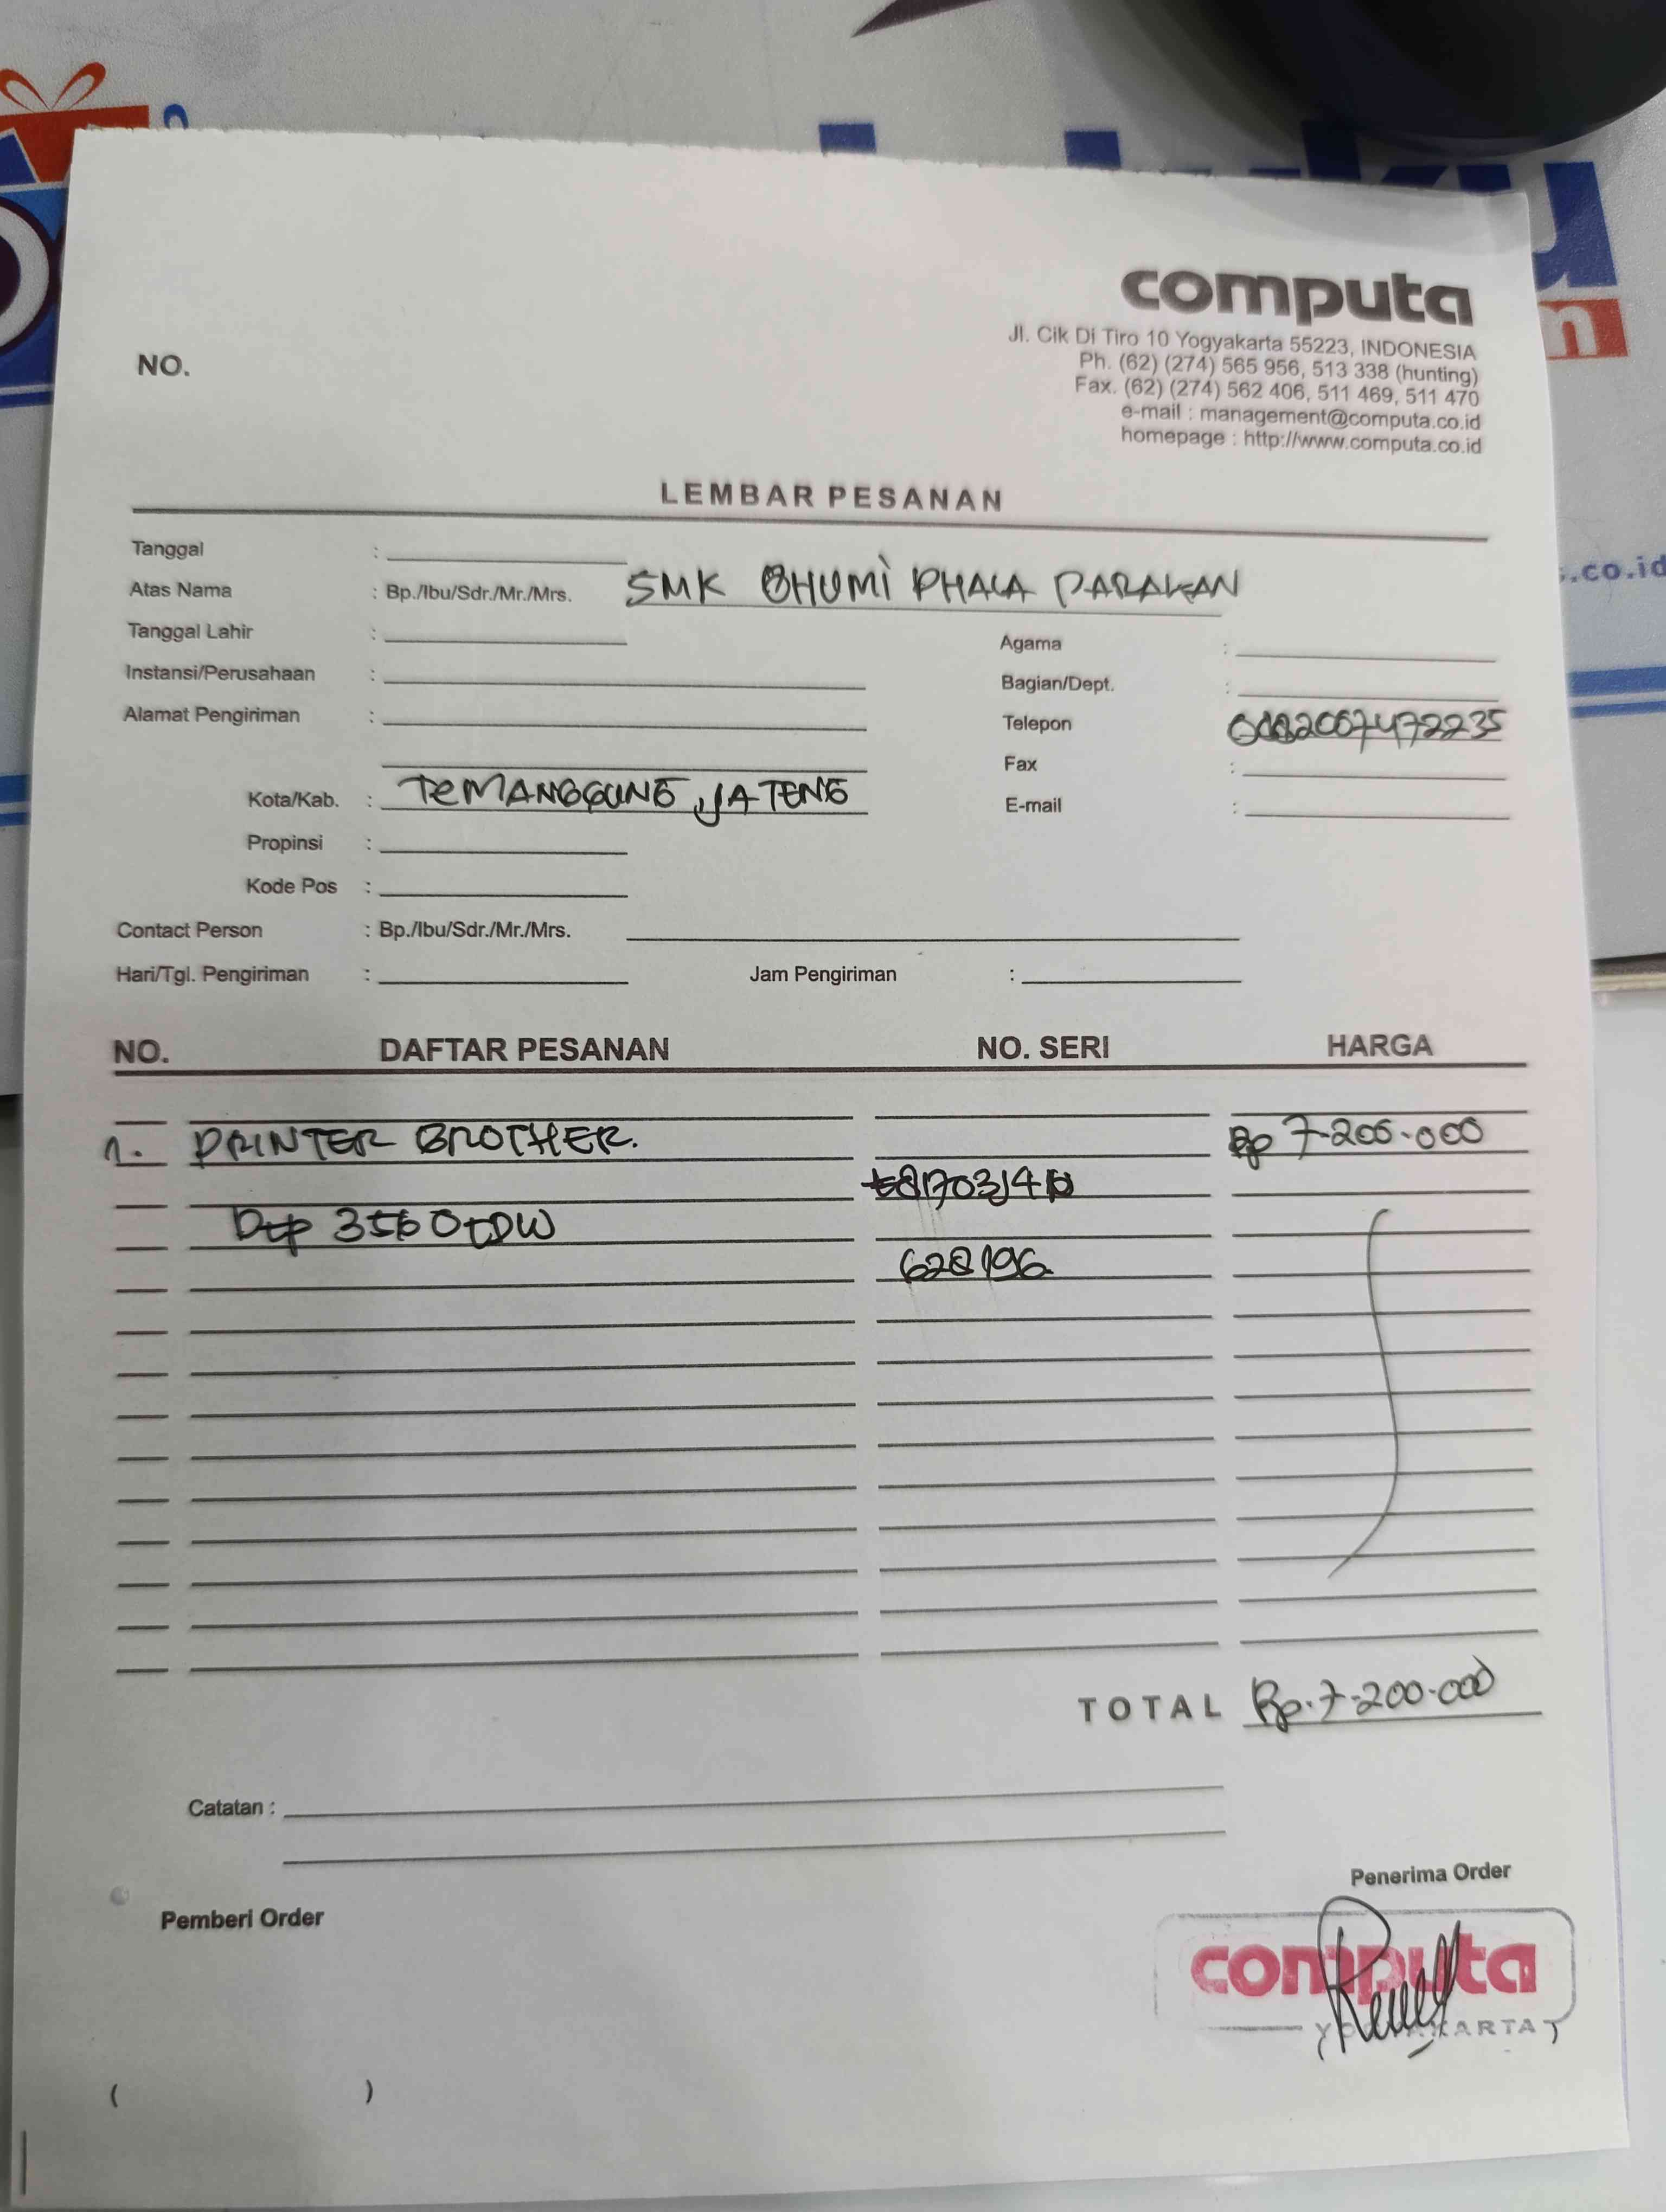 computa
Jl. Cik Di Tiro 10 Yogyakarta 55223, INDONESIA
NO.
Ph. (62) (274) 565 956, 513 338 (hunting)
Fax. (62) (274) 562 406, 511 469, 511 470
e-mail : management@computa.co.id
homepage : http://www.computa.co.id
LEMBAR PESANAN
Tanggal :
Atas Nama : Bp./Ibu/Sdr./Mr./Mrs. SMK BHUMI PHALA PARAKAN
.co.id
Tanggal Lahir : Agama :
Instansi/Perusahaan : Bagian/Dept. :
Alamat Pengiriman : Telepon
Fax :
Kota/Kab. : TEMANGGUNG, JATENG E-mail :
Propinsi :
Kode Pos :
Contact Person : Bp./Ibu/Sdr./Mr./Mrs.
Hari/Tgl. Pengiriman : Jam Pengiriman :
NO. DAFTAR PESANAN NO. SERI HARGA
1. PRINTER BROTHER. Rp 7.200.000
628196
TOTAL Rp.7.200.000
Catatan :
Penerima Order
Pemberi Order
computa
YOGYAKARTA
( )